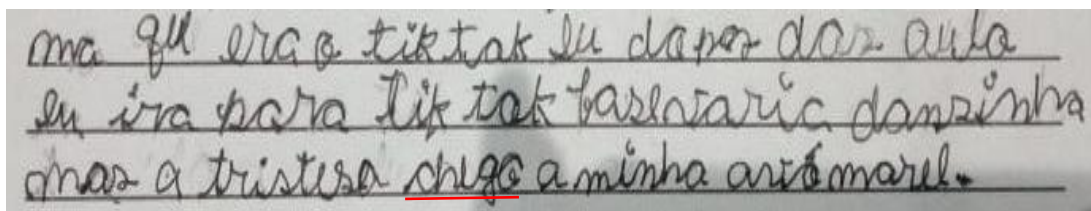 ma qu era o tiktak eu dapos das aula
eu ira para Tik tak fasenvaric danzinha
mas a tristesa chego a minha avó marel.